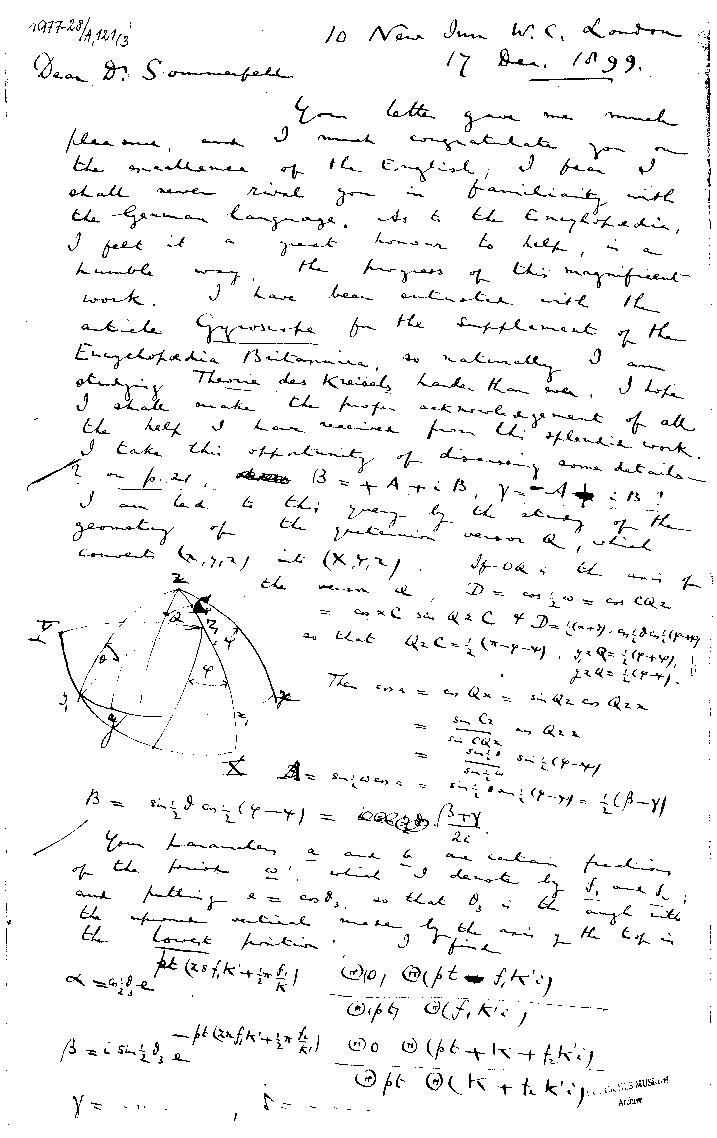 1977-28/A,121/3
10 New Inn W.C. London
17 Dec. 1899.
Dear Dr Sommerfeld
Your letter gave me much
pleasure, and I much congratulate you on
the excellence of the English; I fear I
shall never rival you in familiarity with
the German language. As to the Encyclopædia,
I felt it a great honour to help, in a
humble way, the progress of this magnificent
work. I have been entrusted with the
article Gyroscope for the Supplement of the
Encyclopædia Britannica, so naturally I am
studying Theorie des Kreisels harder than ever. I hope
I shall make the proper acknowledgement of all
the help I have received from this splendid work.
I take this opportunity of discussing some details—
? on p. 21, B = + A + i B, γ = - A + i B ?
I am led to this query by the study of the
geometry of the quaternion versor Q, which
converts (x, y, z) into (X, Y, Z). If OQ is the axis of
the versor Q, D = cos ½ω = cos CQz
= cos x C sin QzC & D = cos ½ϑ cos ½(φ+ψ)
so that QzC = ½(π-φ-ψ), y₁zQ = ½(φ+ψ),
yzQ = ½(φ-ψ).
Then cos a = cos Qx = sin Qz cos Qzx
= sin Cz / sin CQz cos Qzx
= sin ½ϑ / sin ½ω sin ½(φ-ψ)
A = sin ½ω cos a = sin ½ϑ sin ½(φ-ψ) = ½(β-γ)
B = sin ½ϑ cos ½(φ-ψ) = β+γ / 2i
Your parameters a and b are certain fractions
of the period ω', which I denote by f₁ and f₂;
and putting e = cos ϑ₃, so that ϑ₃ is the angle with
the upward vertical made by the axis of the top in
the lowest position. I find
α = cos ½ϑ₃ e pt (zs f₁K' + ½π f₁/K) Θ0, Θ(pt - f₁K'i)
Θpt, Θ(f₁K'i)
β = i sin ½ϑ₃ e - pt (zn f₂K' + ½π f₂/K) Θ0 Θ(pt + K + f₂K'i)
Θpt Θ(K + f₂K'i)
γ = ..... , δ = ......
MUSEUM
Archiv